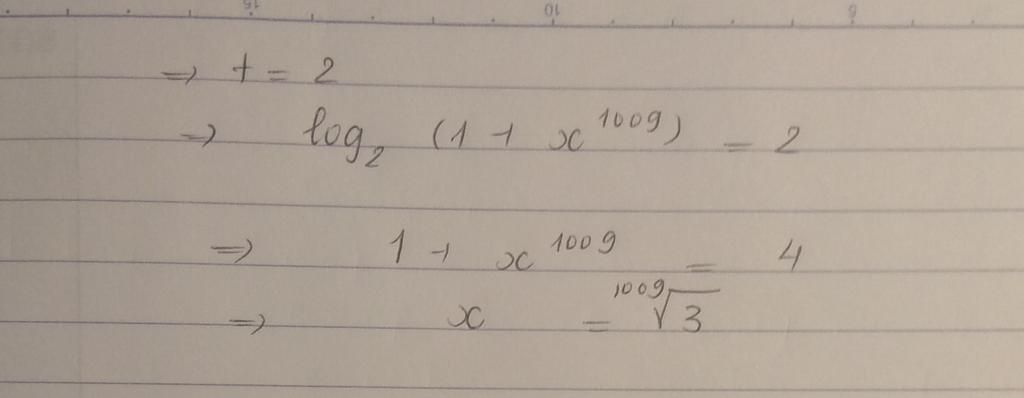 15 10 5
⇒ t = 2
⇒ log₂ (1 + x¹⁰⁰⁹) = 2
⇒ 1 + x¹⁰⁰⁹ = 4
⇒ x = ¹⁰⁰⁹√3